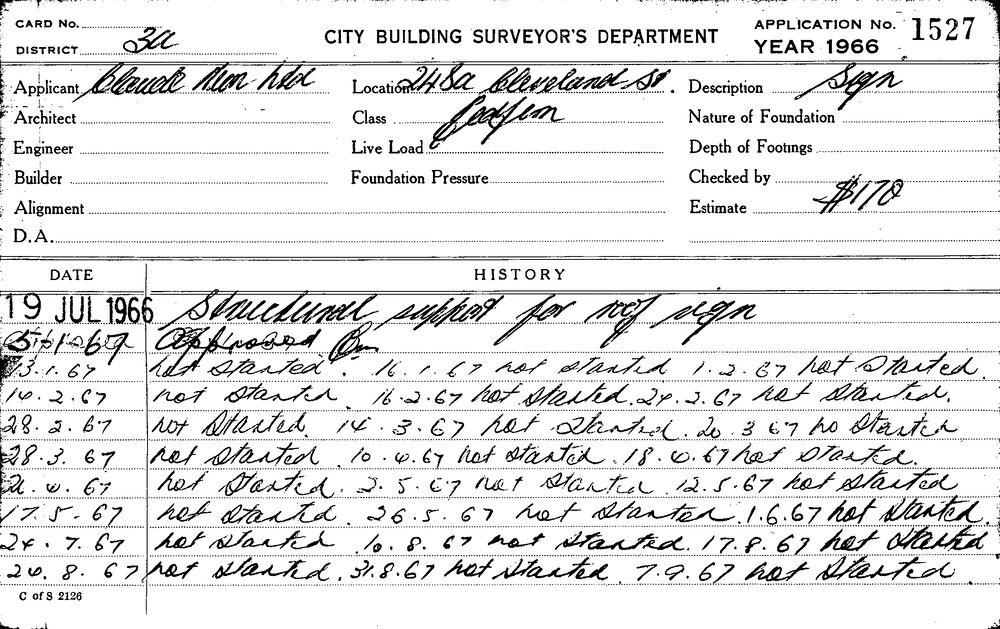 CARD No.
DISTRICT 3a
CITY BUILDING SURVEYOR'S DEPARTMENT
APPLICATION No. 1527
YEAR 1966
Applicant Claude Neon Ltd Location 248a Cleveland St. Description Sign
Architect Class Redfern Nature of Foundation
Engineer Live Load Depth of Footings
Builder Foundation Pressure Checked by
Alignment Estimate $170
D.A.
DATE HISTORY
19 JUL 1966 Structural support for roof sign
5.1.67 Approved
13.1.67 not started. 16.1.67 not started 1.2.67 not started
10.2.67 not started. 16.2.67 not started. 24.2.67 not started.
28.2.67 not started. 14.3.67 not started. 20.3.67 no started
28.3.67 not started. 10.4.67 not started. 18.4.67 not started.
21.4.67 not started. 2.5.67 not started. 12.5.67 not started
17.5.67 not started. 26.5.67 not started. 1.6.67 not started.
24.7.67 not started. 10.8.67 not started. 17.8.67 not started
24.8.67 not started. 31.8.67 not started. 7.9.67 not started.
C of S 2126